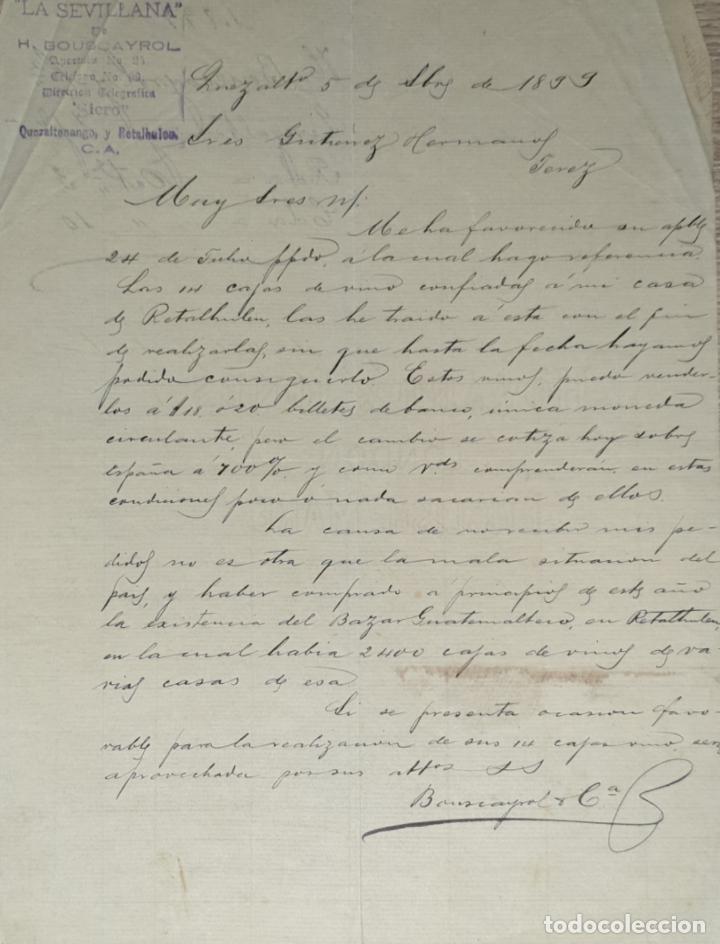 "LA SEVILLANA"
De
H. BOUSCAYROL
Apartado No. 21.
Teléfono No. 99.
Dirección Telegráfica
"Siero"
Quezaltenango, y Retalhuleu.
C.A.
Quezaltº 5 de Sbre de 1899
Sres Gutierrez Hermanos
Jerez
Muy Sres m/:
Me ha favorecido su apble
24 de Julio ppdo, á la cual hago referencia.
Las 14 cajas de vino confiadas á mi casa
de Retalhuleu, las he traido á esta con el fin
de realizarlas, sin que hasta la fecha hayamos
podido conseguirlo. Estos vinos, puedo vender-
los á $18 ó 20 billetes de banco, única moneda
circulante, pero el cambio se cotiza hoy sobre
España á 700% y como Vds comprenderan, en estas
condiciones poco ó nada sacarian de ellos.
La causa de no recibir mis pe-
didos no es otra que la mala situacion del
pais, y haber comprado á principios de este año
la existencia del Bazar Guatemalteco, en Retalhuleu,
en la cual habia 2400 cajas de vinos de va-
rias casas de esa.
Si se presenta ocasion favo-
rable para la realizacion de sus 14 cajas vino, sera
aprovechada por sus attos SS
Bouscayrol & Cª
todocoleccion